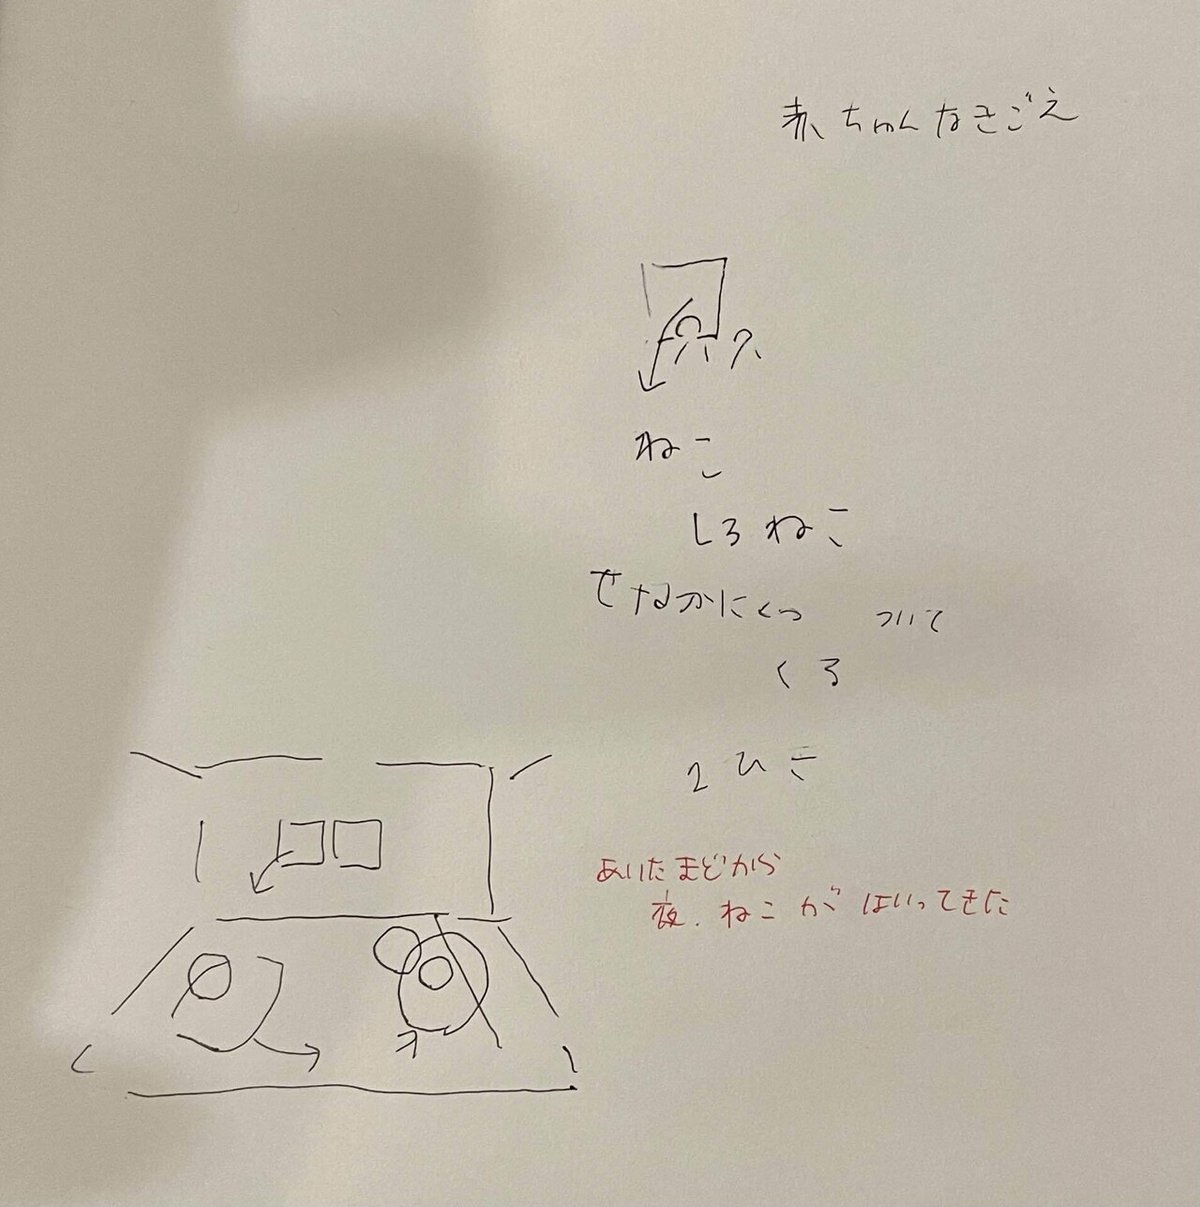 赤ちゃんなきごえ
穴
ねこ
しろねこ
せなかにくっ ついて
くろ
2ひき
あいたまどから
夜.ねこがはいってきた